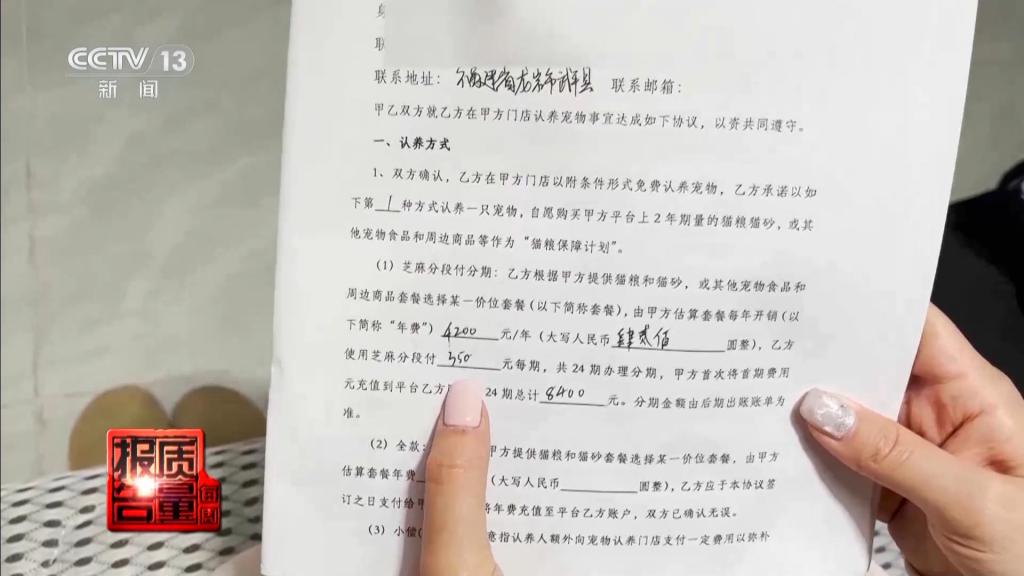 CCTV 13
新闻
联系地址:福建省龙岩市武平县 联系邮箱:
甲乙双方就乙方在甲方门店认养宠物事宜达成如下协议,以资共同遵守。
一、认养方式
1、双方确认,乙方在甲方门店以附条件形式免费认养宠物,乙方承诺以如
下第1种方式认养一只宠物,自愿购买甲方平台上2年期量的猫粮猫砂,或其
他宠物食品和周边商品等作为“猫粮保障计划”。
(1)芝麻分段付分期:乙方根据甲方提供猫粮和猫砂,或其他宠物食品和
周边商品套餐选择某一价位套餐(以下简称套餐),由甲方估算套餐每年开销(以
下简称“年费”)4200元/年(大写人民币肆贰佰圆整),乙方
使用芝麻分段付350元每期,共24期办理分期,甲方首次将首期费用
元充值到平台乙方 24期总计8400元。分期金额由后期出账账单为
准。
(2)全款: 甲方提供猫粮和猫砂套餐选择某一价位套餐,由甲方
估算套餐年费 (大写人民币 圆整),乙方应于本协议签
订之日支付给甲 将年费充值至平台乙方账户,双方已确认无误。
(3)小偿( 意指认养人额外向宠物认养门店支付一定费用以弥补
质量报告
每周